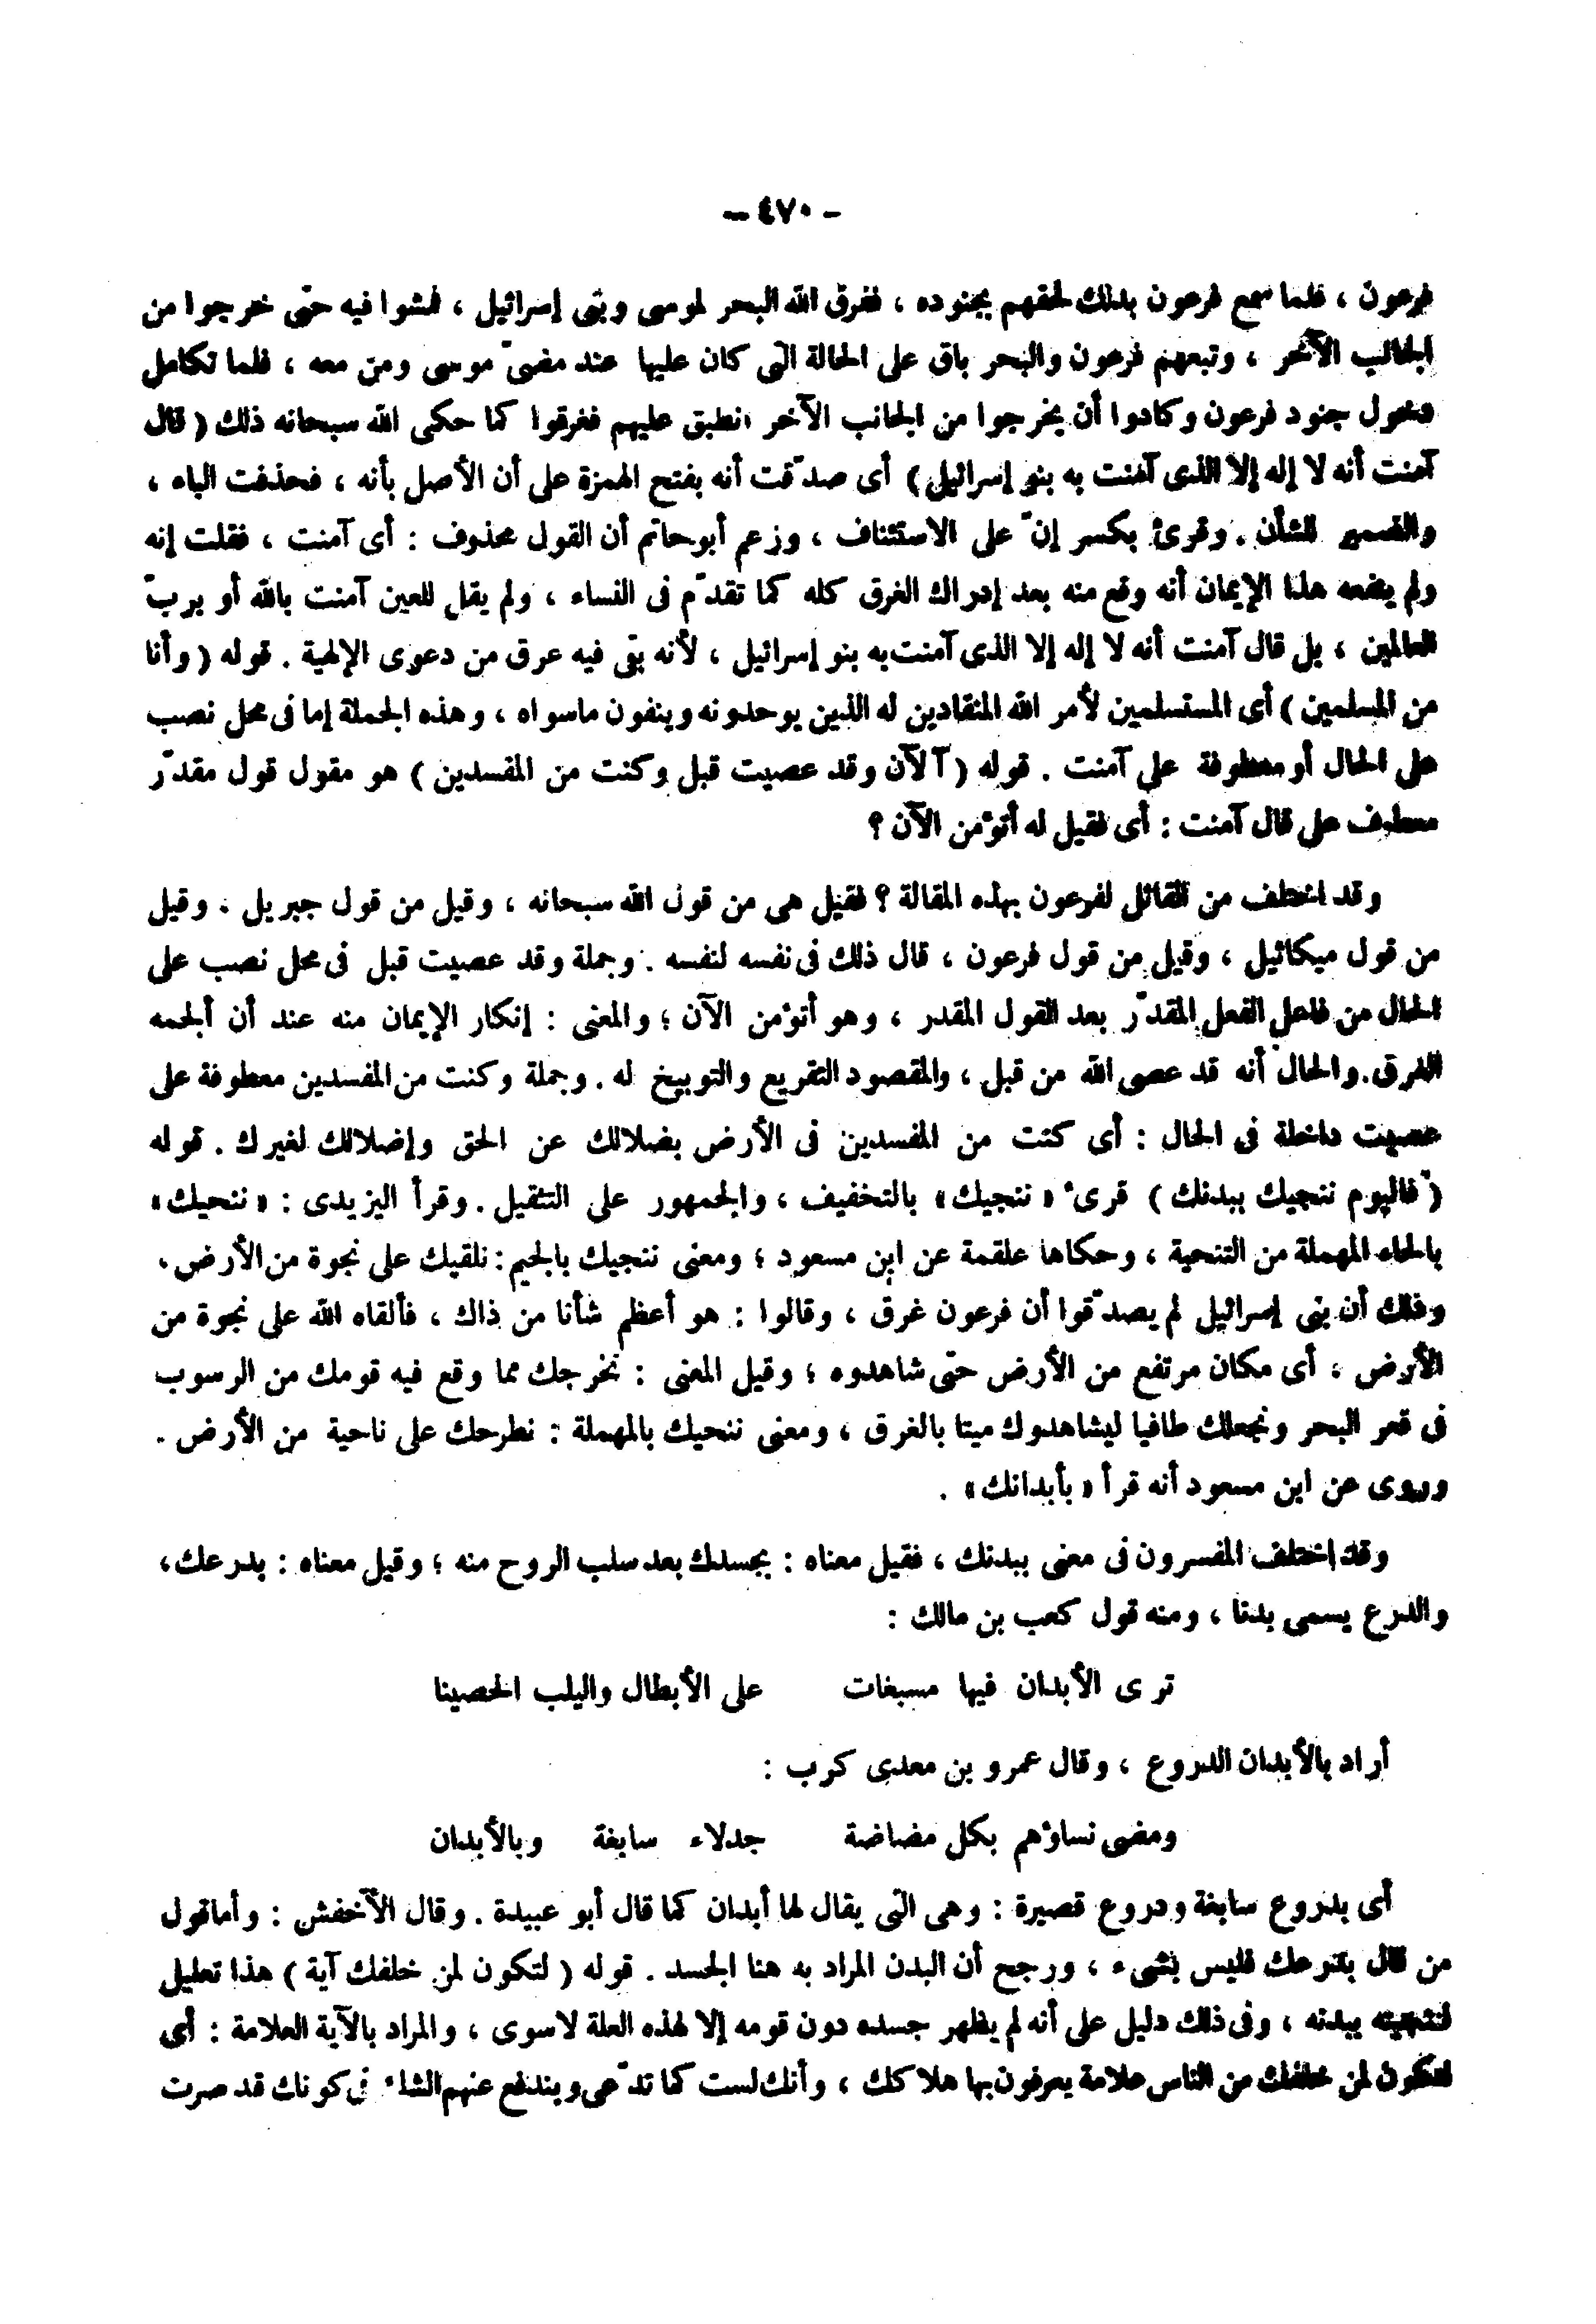 - ٤٧٠ -
فرعون ، فلما سمع فرعون بذلك لحقهم بجنوده ، ففرق الله البحر لموسى وبنى إسرائيل ، فمشوا فيه حتى خرجوا من
الجانب الآخر ، وتبعهم فرعون والبحر باق على الحالة التى كان عليها عند مضىّ موسى ومن معه ، فلما تكامل
دخول جنود فرعون وكادوا أن يخرجوا من الجانب الآخر انطبق عليهم فغرقوا كما حكى الله سبحانه ذلك ( قال
آمنت أنه لا إله إلا الذى آمنت به بنو إسرائيل ) أى صدّقت أنه بفتح الهمزة على أن الأصل بأنه ، فحذفت الباء ،
والضمير للشأن . وقرئ بكسر إنّ على الاستئناف ، وزعم أبو حاتم أن القول محذوف : أى آمنت ، فقلت إنه
ولم ينفعه هذا الإيمان أنه وقع منه بعد إدراك الغرق كله كما تقدّم فى النساء ، ولم يقل للعين آمنت بالله أو بربّ
العالمين ، بل قال آمنت أنه لا إله إلا الذى آمنت به بنو إسرائيل ، لأنه بقى فيه عرق من دعوى الإلهية . قوله ( وأنا
من المسلمين ) أى المستسلمين لأمر الله المنقادين له الذين يوحدونه وينفون ماسواه ، وهذه الجملة إما فى محل نصب
على الحال أو معطوفة على آمنت . قوله ( آلآن وقد عصيت قبل وكنت من المفسدين ) هو مقول قول مقدّر
معطوف على قال آمنت : أى فقيل له أتؤمن الآن ؟
وقد اختلف من القائل لفرعون بهذه المقالة ؟ فقيل هى من قول الله سبحانه ، وقيل من قول جبريل . وقيل
من قول ميكائيل ، وقيل من قول فرعون ، قال ذلك فى نفسه لنفسه . وجملة وقد عصيت قبل فى محل نصب على
الحال من فاعل الفعل المقدّر بعد القول المقدر ، وهو أتؤمن الآن ؛ والمعنى : إنكار الإيمان منه عند أن ألجمه
الغرق . والحال أنه قد عصى الله من قبل ، والمقصود التقريع والتوبيخ له . وجملة وكنت من المفسدين معطوفة على
عصيت داخلة فى الحال : أى كنت من المفسدين فى الأرض بضلالك عن الحق وإضلالك لغيرك . قوله
( فاليوم ننجيك ببدنك ) قرىء « ننجيك » بالتخفيف ، والجمهور على التثقيل . وقرأ اليزيدى : « ننحيك »
بالحاء المهملة من التنحية ، وحكاها علقمة عن ابن مسعود ؛ ومعنى ننجيك بالجيم : نلقيك على نجوة من الأرض ،
وذلك أن بنى إسرائيل لم يصدّقوا أن فرعون غرق ، وقالوا : هو أعظم شأنا من ذاك ، فألقاه الله على نجوة من
الأرض ، أى مكان مرتفع من الأرض حتى شاهدوه ؛ وقيل المعنى : نخرجك مما وقع فيه قومك من الرسوب
فى قعر البحر ونجعلك طافيا ليشاهدوك ميتا بالغرق ، ومعنى ننحيك بالمهملة : نطرحك على ناحية من الأرض .
وروى عن ابن مسعود أنه قرأ « بأبدانك » .
وقد اختلف المفسرون فى معنى ببدنك ، فقيل معناه : بجسدك بعد سلب الروح منه ؛ وقيل معناه : بدرعك ،
والدرع يسمى بدنا ، ومنه قول كعب بن مالك :
ترى الأبدان فيها مسبغات على الأبطال واليلب الحصينا
أراد بالأبدان الدروع ، وقال عمرو بن معدى كرب :
ومضى نساؤهم بكل مضاضة جدلاء سابغة وبالأبدان
أى بدروع سابغة ودروع قصيرة : وهى التى يقال لها أبدان كما قال أبو عبيدة . وقال الأخفش : وأما قول
من قال بدرعك فليس بشىء ، ورجح أن البدن المراد به هنا الجسد . قوله ( لتكون لمن خلفك آية ) هذا تعليل
لتنجيته ببدنه ، وفى ذلك دليل على أنه لم يظهر جسده دون قومه إلا لهذه العلة لا سوى ، والمراد بالآية العلامة : أى
لتكون لمن خلفك من الناس علامة يعرفون بها هلاكك ، وأنك لست كما تدّعى ويندفع عنهم الشك فى كونك قد صرت